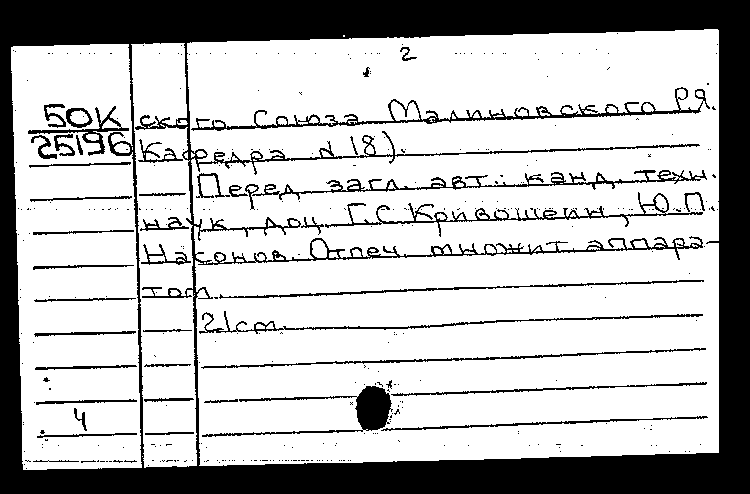 2
50К ского Союза Малиновского Р.Я.
25196 Кафедра N 18).
Перед загл. авт.: канд. техн.
наук, доц. Г.С. Кривошеин, Ю.П.
Насонов. Отпеч. множит аппара-
том.
21см.
4